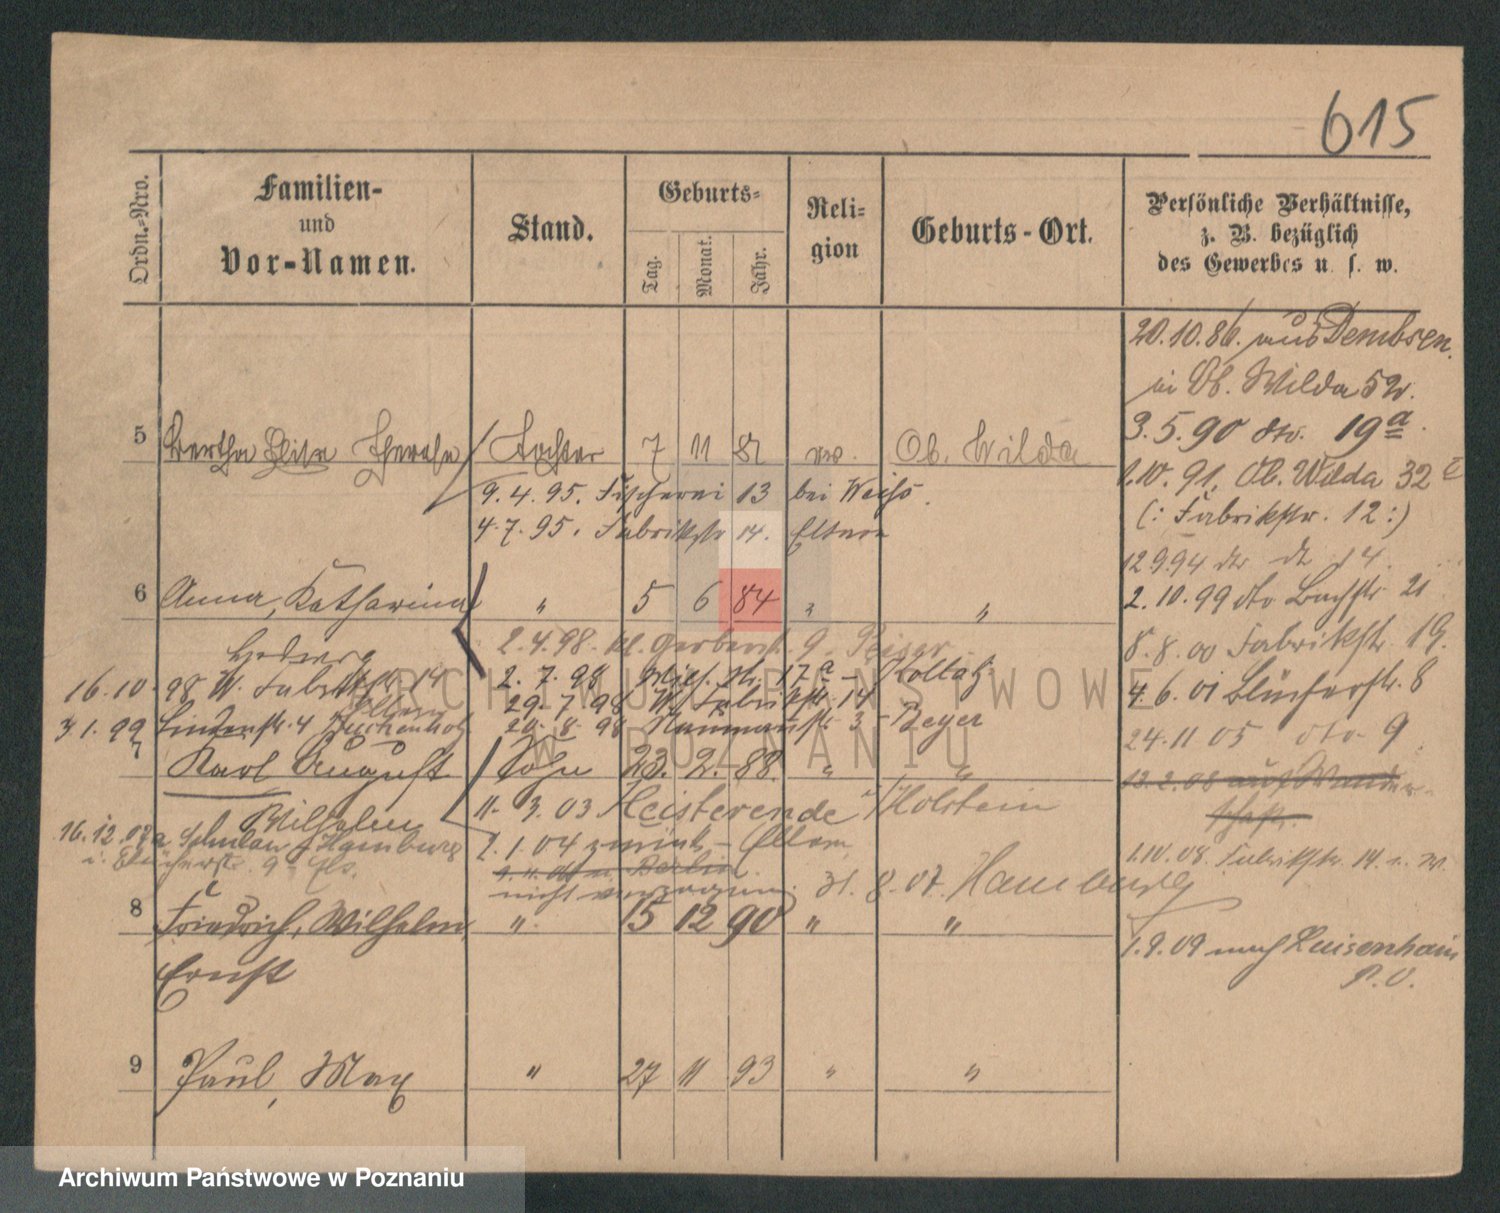 615
Ordn.-Nro.
Familien-
und
Vor-Namen.
Stand.
Geburts-
Tag.
Monat.
Jahr.
Reli-
gion
Geburts-Ort.
Persönliche Verhältnisse,
z. B. bezüglich
des Gewerbes u. s. w.
20.10.86. aus Dembsen.
in Ob. Wilda 52.
3.5.90 dto. 19a.
5 Bertha Therese Tochter 7 11 ev. Ob. Wilda
1.10.91. Ob. Wilda 32
9.4.95. Fischerei 13 bei Weiß.
(: Fabrikstr. 12 :)
4.7.95. Fabrikstr 14. Eltern
12 9.94 dto 14.
6 Anna, Katharina " 5 6 84 " "
2.10.99 dto Bachstr 21
Hedwig
2.4.98. kl. Gerberst. 9.
8.8.00 Fabrikstr. 19.
16.10.98 W. Fabrikstr 14
Eltern
2.7.98 17a - Kollatz
29.7.98 W. Fabrikstr. 14
4.6.01 Blücherstr. 8
3.1.99 Lindenstr. 4
20.8.98 Naumannstr. 3 - Beyer
24.11 05 dto 9
7 Karl August Sohn 23. 2. 88. " "
13.2.08 auf Wander-
schaft.
Wilhelm
11. 3.03 Heisterende /Holstein
16.12.07 Hamburg
2.1.04 zurück - Eltern
Blücherstr. 9
Berlin
nicht verzogen.
31.8.07. Hamburg
1.10.08. Fabrikstr. 14
8 Friedrich, Wilhelm " 15 12 90 " "
Ernst
1.9.09 nach Luisenhain
P.O.
9 Paul, Max " 27 11 93 " "
ARCHIWUM PAŃSTWOWE
W POZNANIU
Archiwum Państwowe w Poznaniu